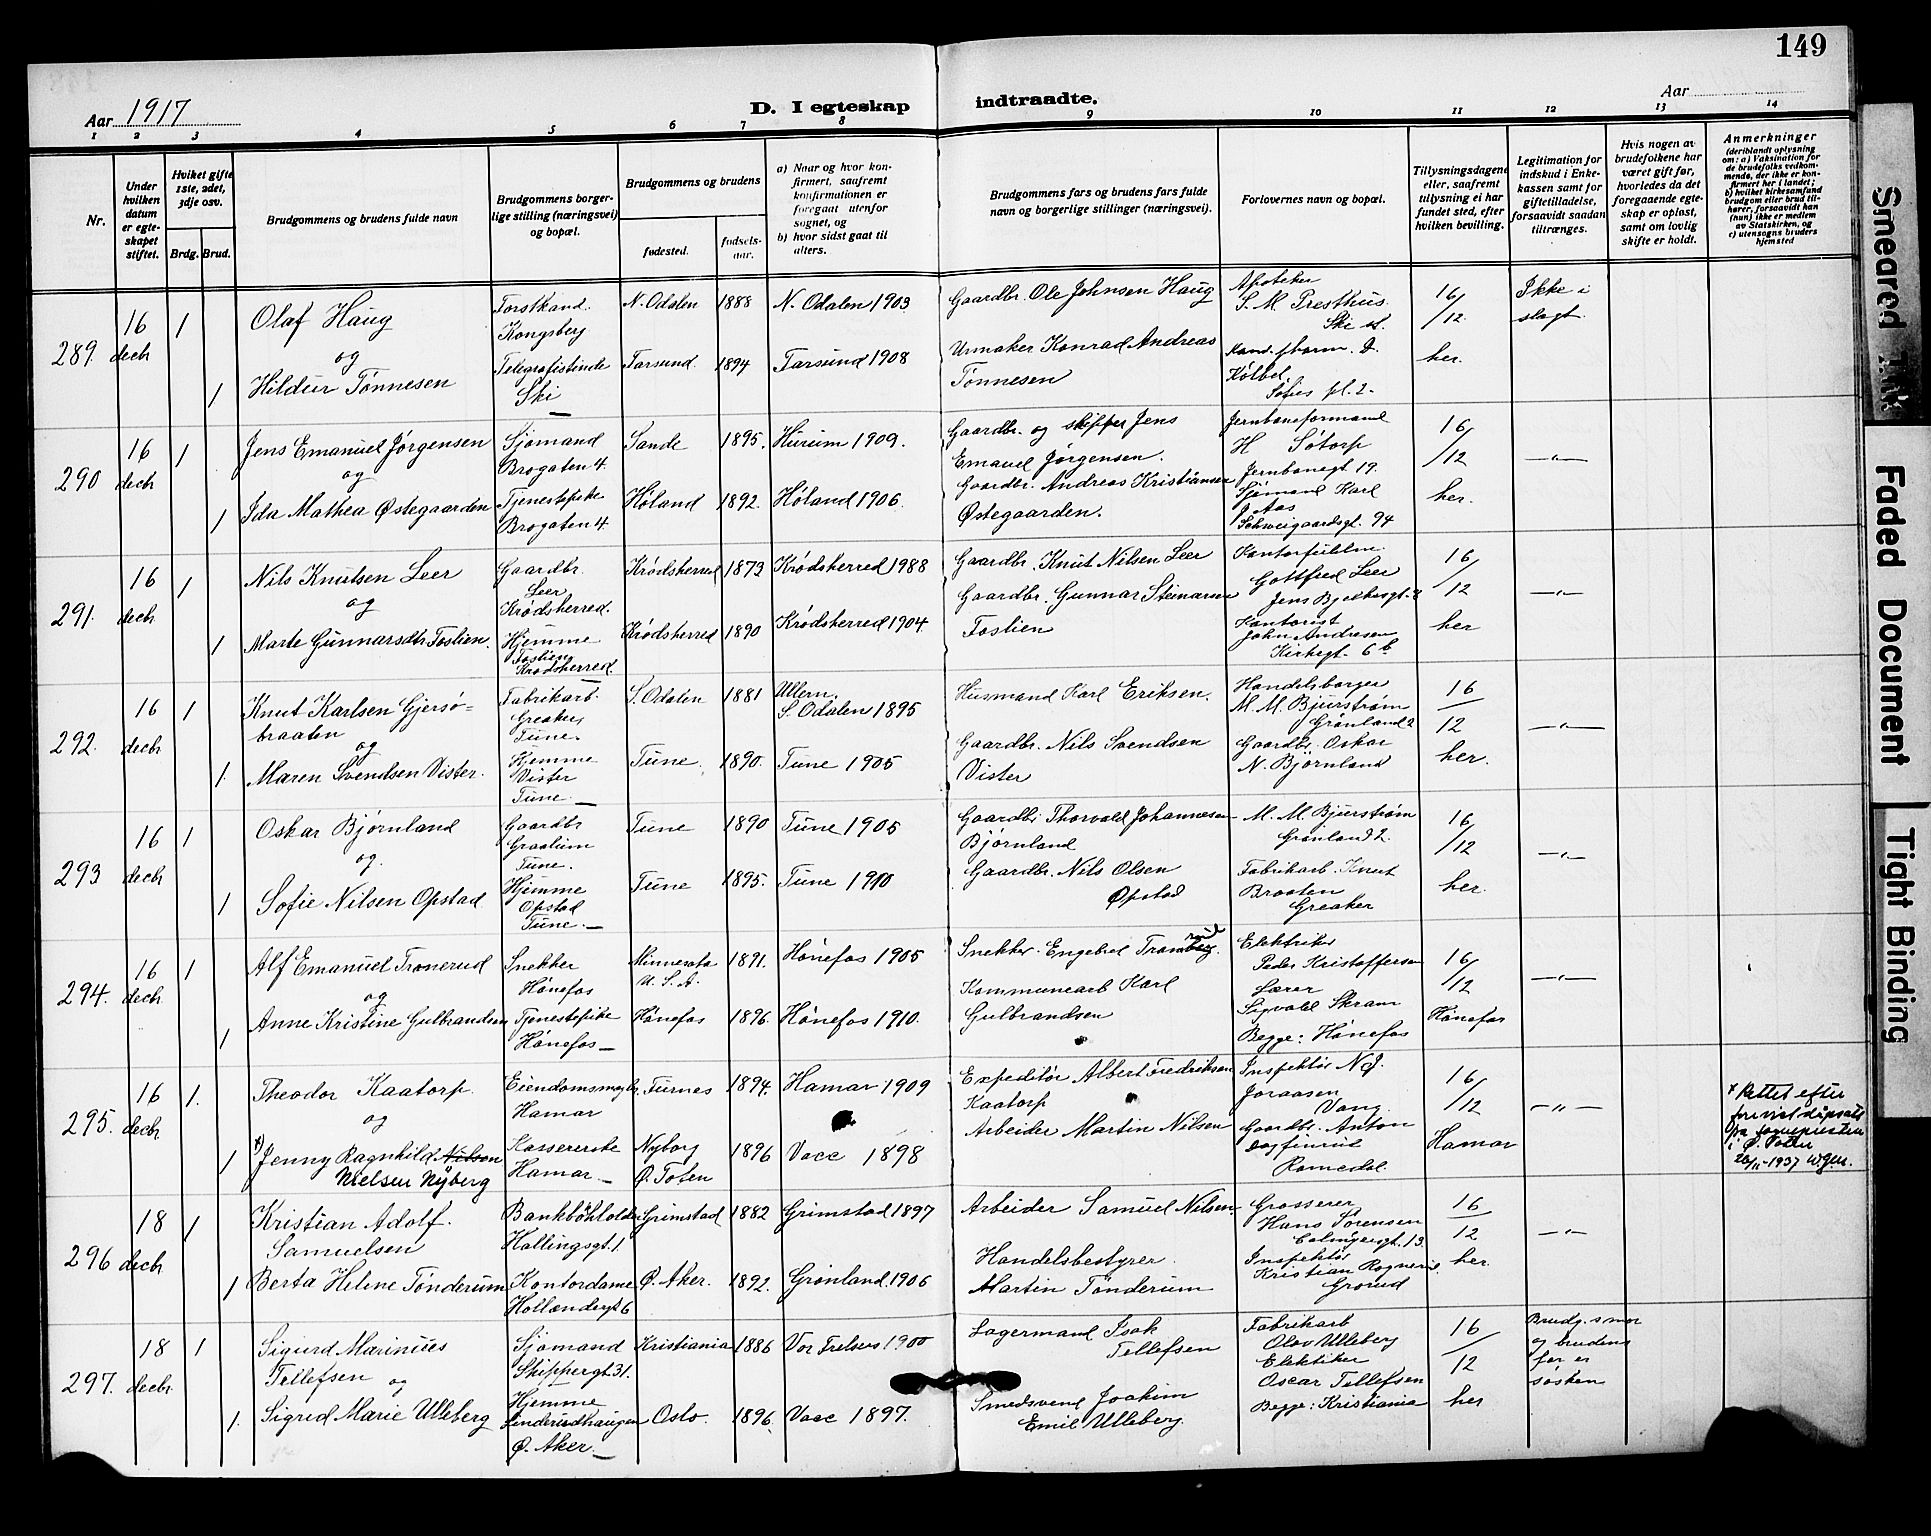 149
Aar 1917
D. I egteskap indtraadte.
Aar
1 2 3 4 5 6 7 8 9 10 11 12 13 14
Nr.
Under hvilken datum er egteskapet stiftet.
Hvilket gifte 1ste, 2det, 3dje osv.
Brdg. Brud.
Brudgommens og brudens fulde navn
Brudgommens borgerlige stilling (næringsvei) og bopæl.
Brudgommens og brudens
fødested.
fødselsaar.
a) Naar og hvor konfirmert, saafremt konfirmationen er foregaat utenfor sognet, og
b) hvor sidst gaat til alters.
Brudgommens fars og brudens fars fulde navn og borgerlige stillinger (næringsvei).
Forlovernes navn og bopæl.
Tillysningsdagene eller, saafremt tillysning ei har fundet sted, efter hvilken bevilling.
Legitimation for indskud i Enkekassen samt for giftetilladelse, forsaavidt saadan tiltrænges.
Hvis nogen av brudefolkene har været gift før, hvorledes da det foregaaende egteskap er opløst, samt om lovlig skifte er holdt.
Anmerkninger
(deriblandt oplysning om: a) Vaksination for de brudefolks vedkommende, der ikke er konfirmert her i landet; b) hvilket kirkesamfund brudgom eller brud tilhører, forsaavidt han (hun) ikke er medlem av Statskirken, og c) utensogns bruders hjemsted
289. 16 decbr 1 Olaf Haug Forstkand. Kongsberg N. Odalen 1888 N. Odalen 1903 Gaardbr. Ole Johnsen Haug Apoteker S. M. Presthus. Ski st. 16/12. Ikke i slegt.
og
1 Hildur Tønnesen Telegrafistinde Ski Farsund. 1894 Farsund 1908 Urmaker Konrad Andreas Tønnesen Kand. pharm. D. Kølbel Sofies pl. 2. her.
290 16 decbr 1 Jens Emanuel Jørgensen Sjømand Brogaten 4. Sande 1895. Hurum 1909. Gaardbr. og skipper Jens Emanuel Jørgensen. Jernbaneformand H Søtorp Jernbanegt 19. 16/12 —"—
og
1 Ida Mathea Østegaarden Tjenestepike Brogaten 4. Høland 1892. Høland 1906. Gaardbr. Andreas Kristiansen Østegaarden. Sjømand Karl Aas Schweigaardsgt. 94 her.
291. 16 decbr 1 Nils Knutsen Leer Gaardbr. Leer Krødsherred. Krødsherred 1873 Krødsherred 1988 Gaardbr. Knut Nilsen Leer Kontorfuldm. Gottfred Leer Jens Bjelkesgt. 16/12 —"—
og
1 Marte Gunnarsdtr Fostien. Hjemme Fostien Krødsherred. Krødsherred 1890 Krødsherred 1904. Gaardbr. Gunnar Steinarsen Fostien Kontorist John Andresen Kirkegt. 6 b her
292. 16 decbr 1 Knut Karlsen Gjersøbraaten Fabrikarb. Greaker, Tune. S. Odalen 1881 Ullern. S. Odalen 1895 Husmand Karl Eriksen. Handelsborger M. M. Bjurstrøm Grønland 2 16/12 —"—
og
1. Maren Svendsen Vister. Hjemme Vister Tune. — Tune. 1890. Tune 1905 Gaardbr. Nils Svendsen Vister Gaardbr. Oskar N. Bjørnland her.
293 16 decbr 1 Oskar Bjørnland Gaardbr Graalum Tune. Tune 1890 Tune 1905 Gaardbr. Thorvald Johannesen Bjørnland M. M. Bjurstrøm Grønland 2. 16/12 —"—
og.
1 Sofie Nilsen Opstad Hjemme Opstad Tune. — Tune 1895. Tune 1910 Gaardbr. Nils Olsen Opstad Fabrikarb. Knut Braaten Greaker her.
294. 16 decbr 1 Alf Emanuel Tronerud Snekker Hønefos Minnesota U. S. A. 1891. Hønefos 1905 Snekker. Engebret Tronerud. Elektriker Peder Kristoffersen Særer 16/12 —"—
og
1 Anne Kristine Gulbrandsen Tjenestepike Hønefos — Hønefos 1896. Hønefos 1910. Kommunearb Karl Gulbrandsen Sigvald Skram Begge: Hønefos Hønefos
295. 16 decbr 1. Theodor Kaatorp. Eiendomsmegler. Hamar Furnes 1894. Hamar 1909 Expeditør Albert Fredriksen Kaatorp Inspektør N. J. Joraasen Vang. 16/12 —"—
og
1 x) Jenny Ragnhild Nilsen Nielsen Nyberg Kassererske Hamar — Nyborg Ø. Toten 1896 Vacc 1898 Arbeider Martin Nilsen Gaardbr. Anton Dagfinrud Romedal. Hamar
x Rettet efter forevist dåpsatt. fra sognepresten i Ø. Toten 20/11-1937
296 18 decbr 1 Kristian Adolf. Samuelsen Bankbokholder Hallingsgt. 1. Grimstad 1882 Grimstad 1897 Arbeider Samuel Nilsen. Grosserer Hans Sørensen 16/12 —"—
1 Berta Helene Tønderum Kontordame Hollendergt 6 Ø. Aker. 1892. Grønland. 1906 Handelsbestyrer. Martin Tønderum Inspektør Kristian Rognerud. Grorud her.
297. 18 decbr 1 Sigurd Marinius Tellefsen Sjømand Skippergt 31. Kristiania 1886 Vor Frelsers 1900 Lagermand Isak Tellefsen Fabrikarb Olov Ulleberg 16/12 Brudg.s mor og brudens far er søsken
og
1. Sigrid Marie Ulleberg Hjemme Ø. Aker. — Oslo. 1896. Vacc 1897. Smedsvend Joakim Emil Ulleberg. Elektiker Oscar Tellefsen Begge: Kristiania her
Smeared Ink
Faded Document
Tight Binding